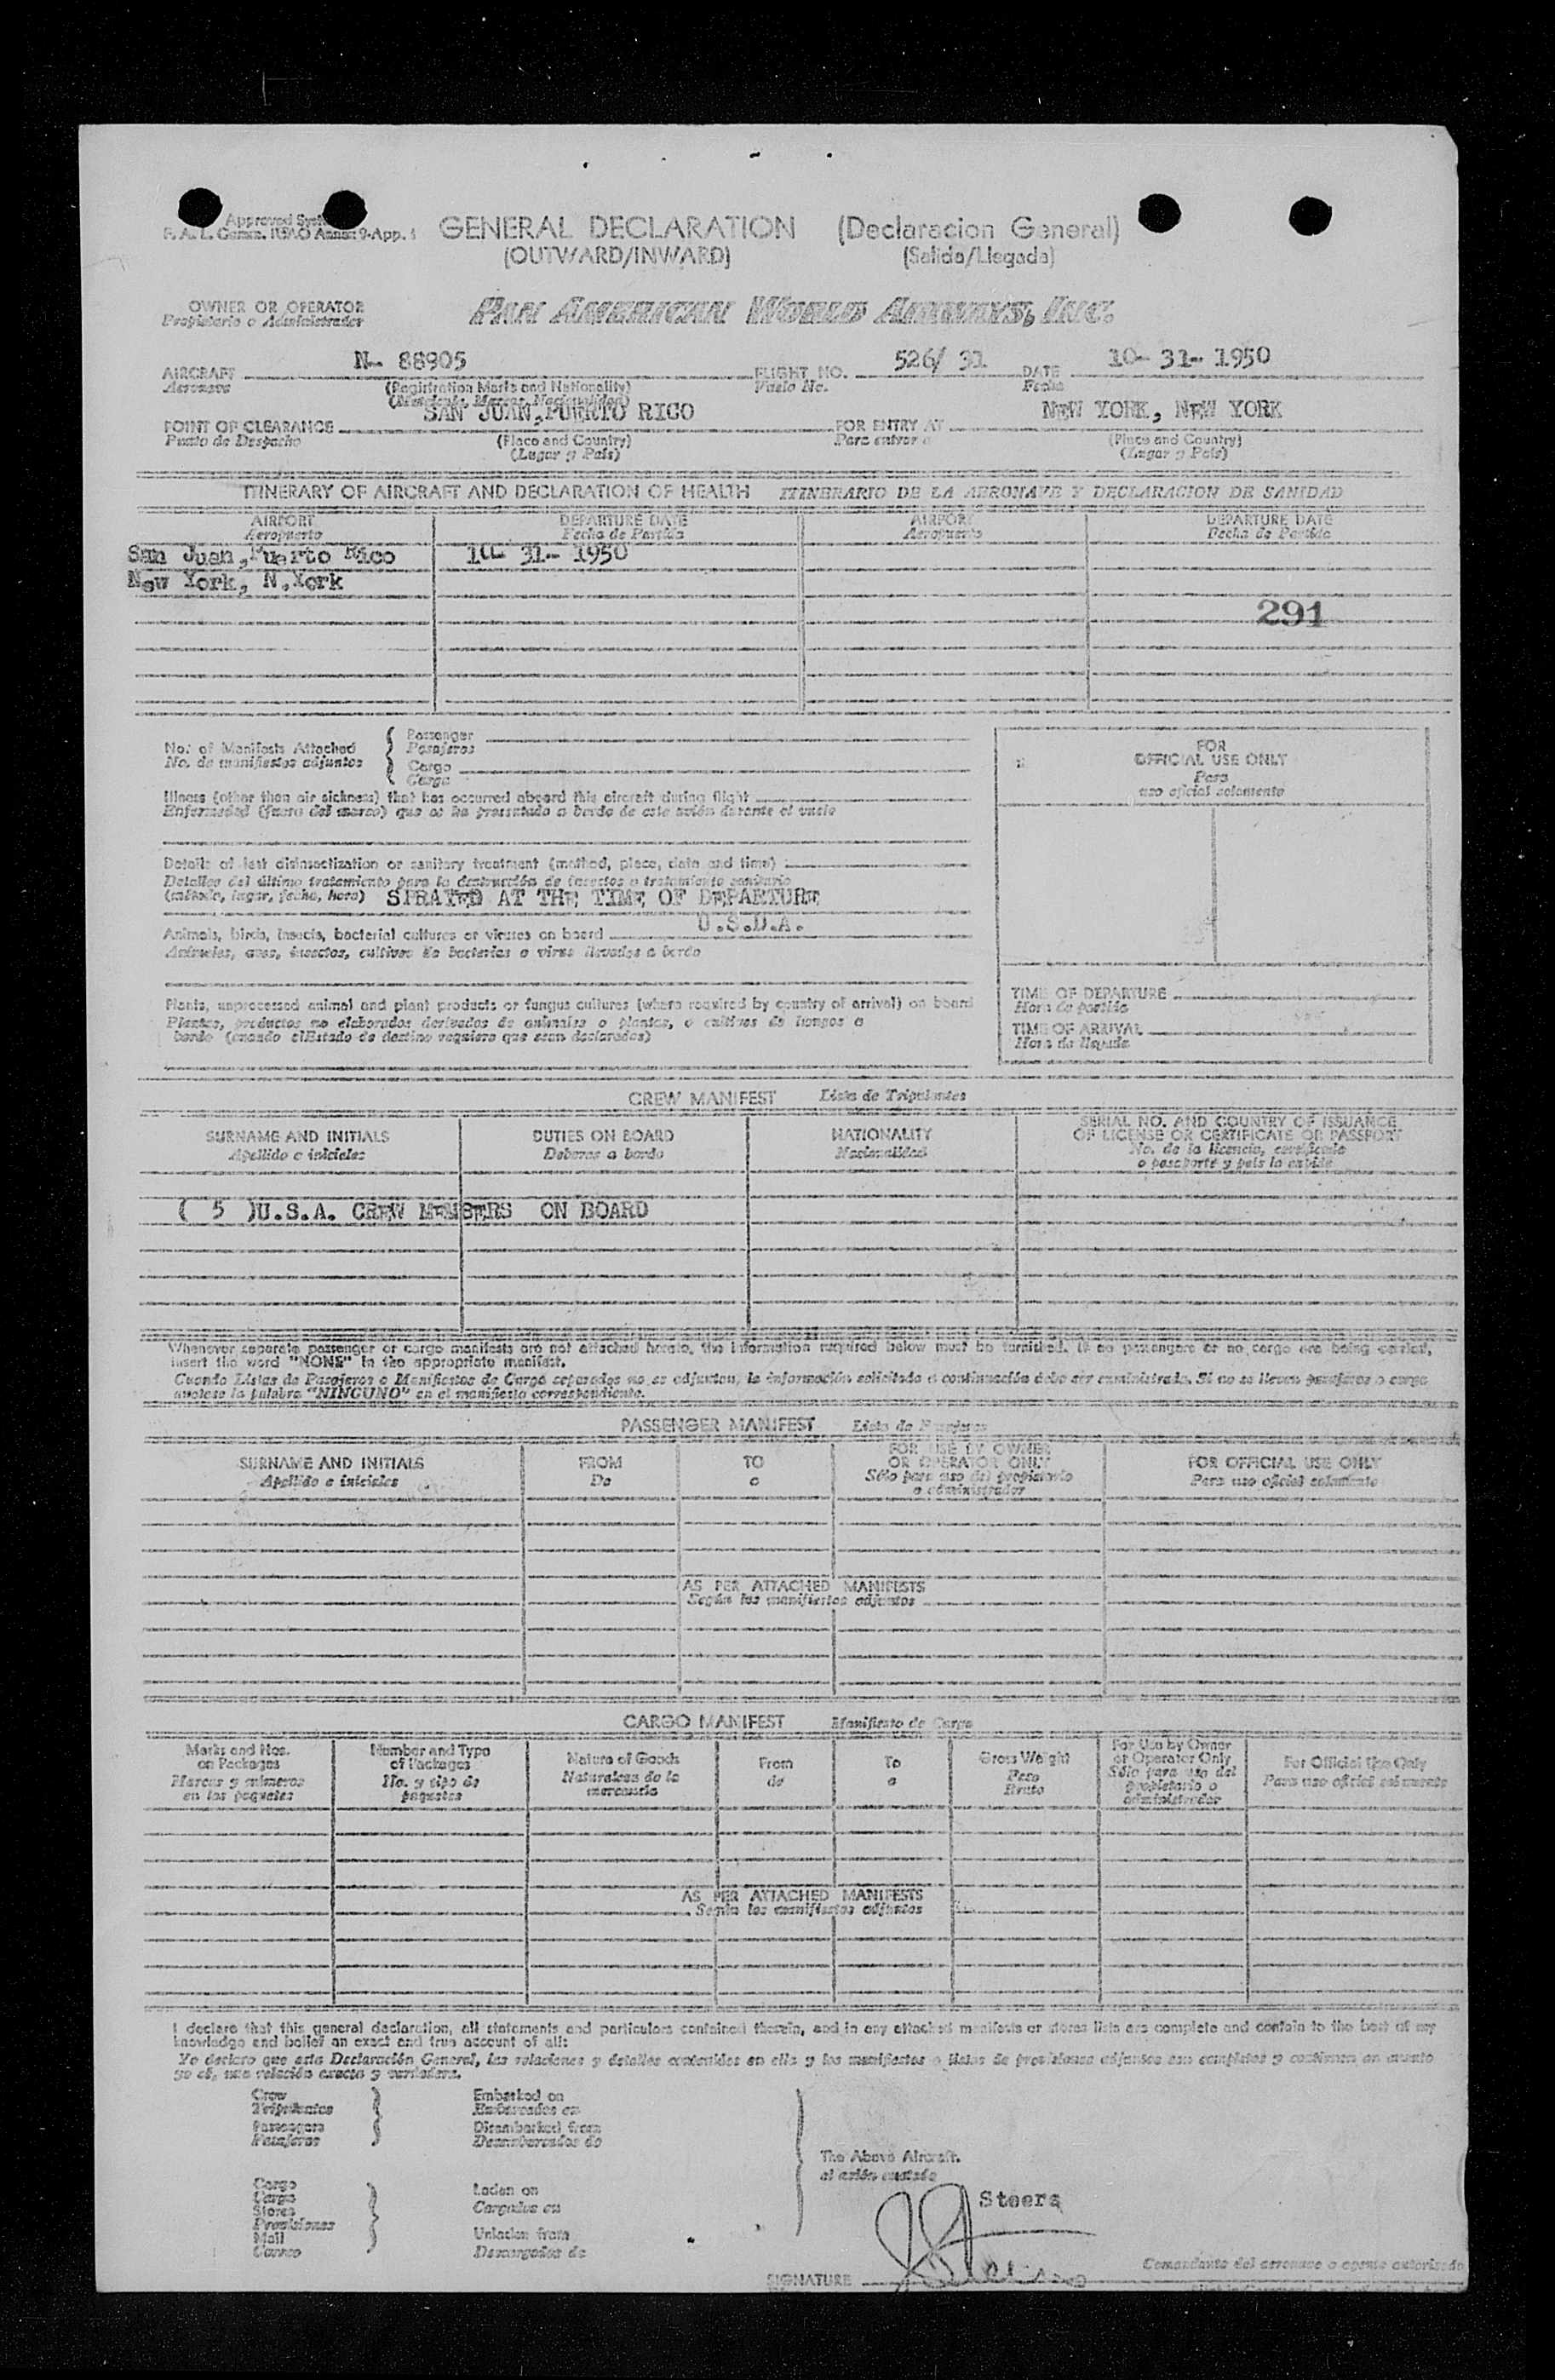 Approved
F. A. L. Comm. ICAO Annex 9-App. 1
GENERAL DECLARATION (Declaracion General)
(OUTWARD/INWARD) (Salida/Llegada)
OWNER OR OPERATOR
Propietario o Administrador
PAN AMERICAN WORLD AIRWAYS, INC.
AIRCRAFT N- 88905 FLIGHT NO. 526/ 31 DATE 10- 31- 1950
Aeronave (Registration Marks and Nationality) Vuelo No. Fecha
(Matricula, Marcas, Nacionalidad)
POINT OF CLEARANCE SAN JUAN,PUERTO RICO FOR ENTRY AT NEW YORK, NEW YORK
Punto de Despacho (Place and Country) Para entrar a (Place and Country)
(Lugar y País) (Lugar y País)
ITINERARY OF AIRCRAFT AND DECLARATION OF HEALTH ITINERARIO DE LA AERONAVE Y DECLARACION DE SANIDAD
AIRPORT DEPARTURE DATE AIRPORT DEPARTURE DATE
Aeropuerto Fecha de Partida Aeropuerto Fecha de Partida
San Juan,Puerto Rico 10- 31- 1950
New York, N.York
291
No. of Manifests Attached
No. de manifiestos adjuntos
Passenger
Pasajeros
Cargo
Carga
FOR
OFFICIAL USE ONLY
Para
uso oficial solamente
Illness (other than air sickness) that has occurred aboard this aircraft during flight
Enfermedad (fuera del mareo) que se ha presentado a bordo de este avión durante el vuelo
Details of last disinsectization or sanitary treatment (method, place, date and time)
Detalles del último tratamiento para la destrucción de insectos o tratamiento sanitario
(método, lugar, fecha, hora) SPRAYED AT THE TIME OF DEPARTURE
U.S.D.A.
Animals, birds, insects, bacterial cultures or viruses on board
Animales, aves, insectos, cultivos de bacterias o virus llevados a bordo
Plants, unprocessed animal and plant products or fungus cultures (where required by country of arrival) on board
Plantas, productos no elaborados derivados de animales o plantas, o cultivos de hongos a
bordo (cuando elEstado de destino requiera que sean declarados)
TIME OF DEPARTURE
Hora de partida
TIME OF ARRIVAL
Hora de llegada
CREW MANIFEST Lista de Tripulantes
SURNAME AND INITIALS DUTIES ON BOARD NATIONALITY SERIAL NO. AND COUNTRY OF ISSUANCE
OF LICENSE OR CERTIFICATE OR PASSPORT
Apellido e iniciales Deberes a bordo Nacionalidad No. de la licencia, certificado
o pasaporte y país la expide
( 5 )U.S.A. CREW MEMBERS ON BOARD
Whenever separate passenger or cargo manifests are not attached hereto, the information required below must be furnished. If no passengers or no cargo are being carried,
insert the word "NONE" in the appropriate manifest.
Cuando Listas de Pasajeros o Manifiestos de Carga separados no se adjuntan, la información solicitada a continuación debe ser suministrada. Si no se llevan pasajeros o carga
anotese la palabra "NINGUNO" en el manifiesto correspondiente.
PASSENGER MANIFEST Lista de Pasajeros
SURNAME AND INITIALS FROM TO FOR USE BY OWNER
OR OPERATOR ONLY FOR OFFICIAL USE ONLY
Apellido e iniciales De a Sólo para uso del propietario
o administrador Para uso oficial solamente
AS PER ATTACHED MANIFESTS
Según los manifiestos adjuntos
CARGO MANIFEST Manifiesto de Carga
Marks and Nos.
on Packages
Marcas y números
en los paquetes
Number and Type
of Packages
No. y tipo de
paquetes
Nature of Goods
Naturaleza de la
mercancía
From
de
To
a
Gross Weight
Peso
Bruto
For Use by Owner
or Operator Only
Sólo para uso del
propietario o
administrador
For Official Use Only
Para uso oficial solamente
AS PER ATTACHED MANIFESTS
Según los manifiestos adjuntos
I declare that this general declaration, all statements and particulars contained therein, and in any attached manifests or stores lists are complete and contain to the best of my
knowledge and belief an exact and true account of all:
Yo declaro que esta Declaración General, las relaciones y detalles contenidos en ella y los manifiestos o listas de provisiones adjuntos son completos y contienen en cuanto
yo sé, una relación exacta y verdadera.
Crew
Tripulantes
Passengers
Pasajeros
Embarked on
Embarcados en
Disembarked from
Desembarcados de
The Above Aircraft.
al avión
Cargo
Carga
Stores
Provisiones
Mail
Correo
Laden on
Cargados en
Unladen from
Descargados de
Steers
SIGNATURE
Comandante del aeronave o agente autorizado